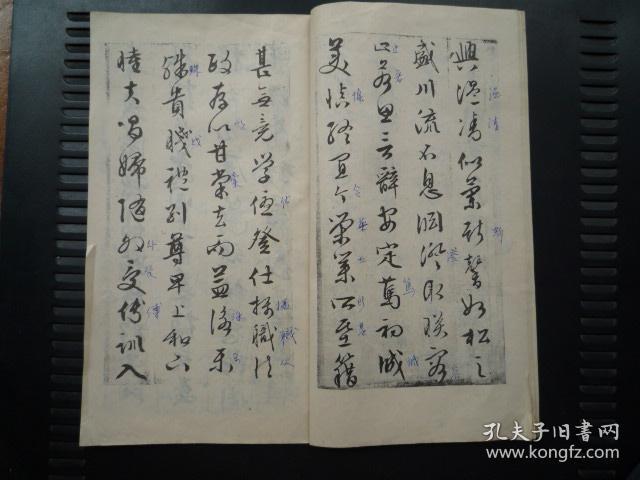 興温凊似蘭斯馨如松之
盛川流不息淵澄取暎容
止若思言辭安定篤初誠
美慎終宜令榮業所基籍
甚無竟学優登仕攝職從
政存以甘棠去而益詠樂
殊貴賤禮別尊卑上和下
睦夫唱婦隨外受傅訓入
孔夫子旧书网
www.kongfz.com